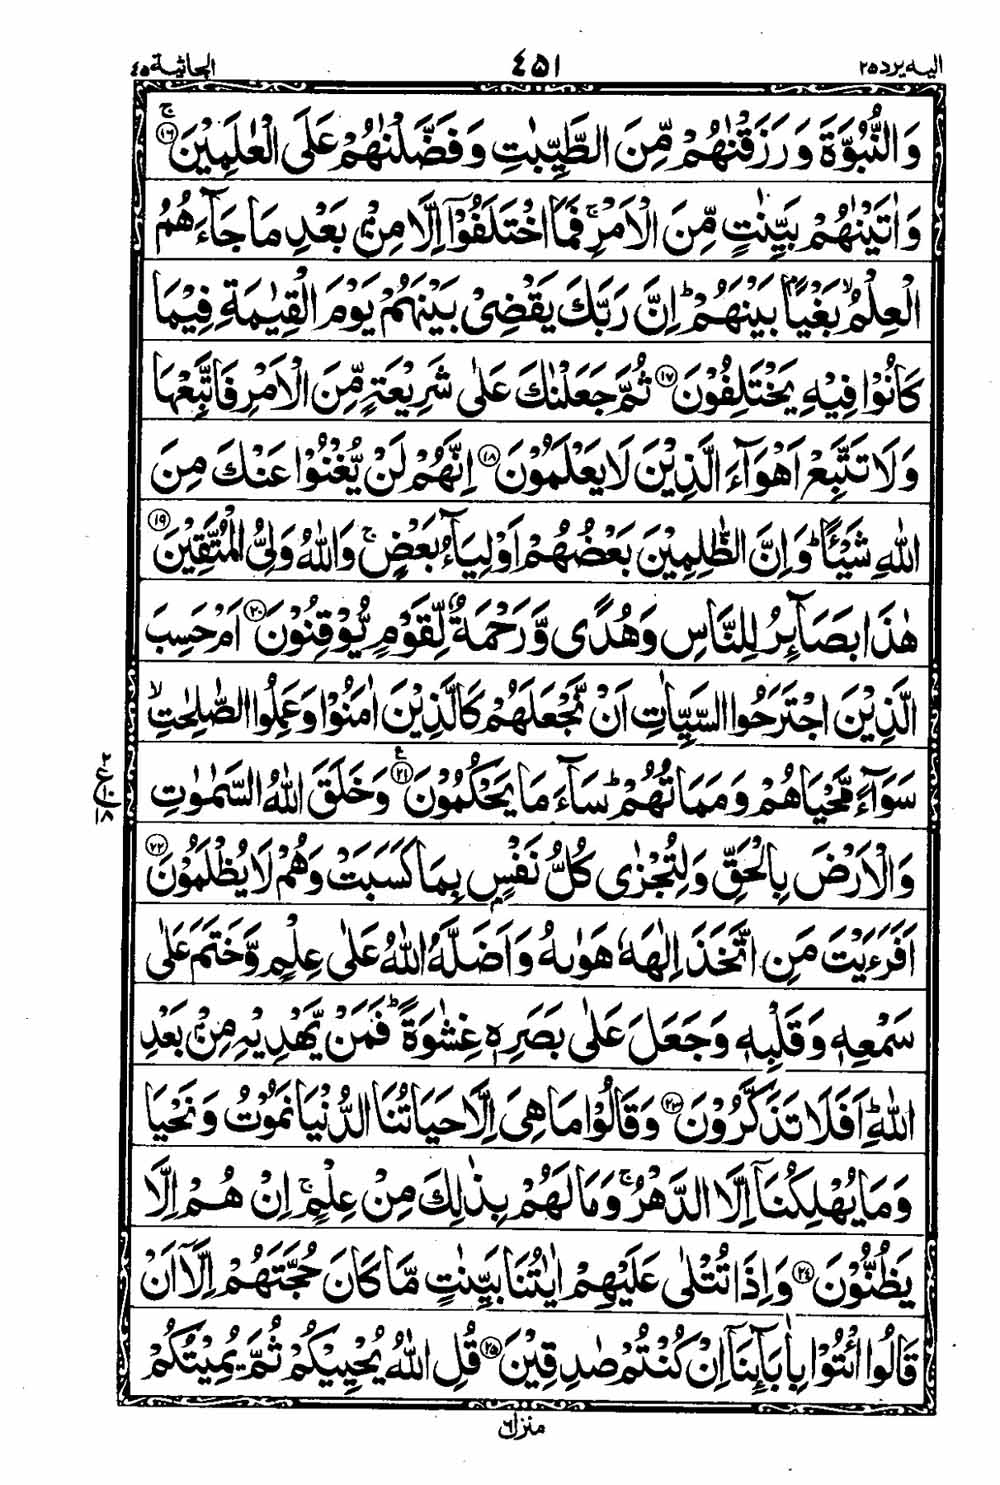 الیه یرد ۲۵ ۴۵۱ الجاثیة ۴۵
وَالنُّبُوَّةَ وَرَزَقْنٰهُمْ مِّنَ الطَّیِّبٰتِ وَفَضَّلْنٰهُمْ عَلَی الْعٰلَمِیْنَ ۚ﴿۱۶﴾
وَاٰتَیْنٰهُمْ بَیِّنٰتٍ مِّنَ الْاَمْرِ ۚ فَمَا اخْتَلَفُوْۤا اِلَّا مِنْۢ بَعْدِ مَا جَآءَهُمُ
الْعِلْمُ ۙ بَغْیًاۢ بَیْنَهُمْ ؕ اِنَّ رَبَّكَ یَقْضِیْ بَیْنَهُمْ یَوْمَ الْقِیٰمَةِ فِیْمَا
كَانُوْا فِیْهِ یَخْتَلِفُوْنَ ﴿۱۷﴾ ثُمَّ جَعَلْنٰكَ عَلٰی شَرِیْعَةٍ مِّنَ الْاَمْرِ فَاتَّبِعْهَا
وَلَا تَتَّبِعْ اَهْوَآءَ الَّذِیْنَ لَا یَعْلَمُوْنَ ﴿۱۸﴾ اِنَّهُمْ لَنْ یُّغْنُوْا عَنْكَ مِنَ
اللّٰهِ شَیْـًٔا ؕ وَاِنَّ الظّٰلِمِیْنَ بَعْضُهُمْ اَوْلِیَآءُ بَعْضٍ ۚ وَاللّٰهُ وَلِیُّ الْمُتَّقِیْنَ ﴿۱۹﴾
هٰذَا بَصَآىِٕرُ لِلنَّاسِ وَهُدًی وَّرَحْمَةٌ لِّقَوْمٍ یُّوْقِنُوْنَ ﴿۲۰﴾ اَمْ حَسِبَ
الَّذِیْنَ اجْتَرَحُوا السَّیِّاٰتِ اَنْ نَّجْعَلَهُمْ كَالَّذِیْنَ اٰمَنُوْا وَعَمِلُوا الصّٰلِحٰتِ ۙ
سَوَآءً مَّحْیَاهُمْ وَمَمَاتُهُمْ ؕ سَآءَ مَا یَحْكُمُوْنَ ﴿۲۱﴾ۧ وَخَلَقَ اللّٰهُ السَّمٰوٰتِ
وَالْاَرْضَ بِالْحَقِّ وَلِتُجْزٰی كُلُّ نَفْسٍۭ بِمَا كَسَبَتْ وَهُمْ لَا یُظْلَمُوْنَ ﴿۲۲﴾
اَفَرَءَیْتَ مَنِ اتَّخَذَ اِلٰهَهٗ هَوٰىهُ وَاَضَلَّهُ اللّٰهُ عَلٰی عِلْمٍ وَّخَتَمَ عَلٰی
سَمْعِهٖ وَقَلْبِهٖ وَجَعَلَ عَلٰی بَصَرِهٖ غِشٰوَةً ؕ فَمَنْ یَّهْدِیْهِ مِنْۢ بَعْدِ
اللّٰهِ ؕ اَفَلَا تَذَكَّرُوْنَ ﴿۲۳﴾ وَقَالُوْا مَا هِیَ اِلَّا حَیَاتُنَا الدُّنْیَا نَمُوْتُ وَنَحْیَا
وَمَا یُهْلِكُنَاۤ اِلَّا الدَّهْرُ ۚ وَمَا لَهُمْ بِذٰلِكَ مِنْ عِلْمٍ ۚ اِنْ هُمْ اِلَّا
یَظُنُّوْنَ ﴿۲۴﴾ وَاِذَا تُتْلٰی عَلَیْهِمْ اٰیٰتُنَا بَیِّنٰتٍ مَّا كَانَ حُجَّتَهُمْ اِلَّاۤ اَنْ
قَالُوا ائْتُوْا بِاٰبَآىِٕنَاۤ اِنْ كُنْتُمْ صٰدِقِیْنَ ﴿۲۵﴾ قُلِ اللّٰهُ یُحْیِیْكُمْ ثُمَّ یُمِیْتُكُمْ
۲
ع ۱۰
۱۸
منزل ۶